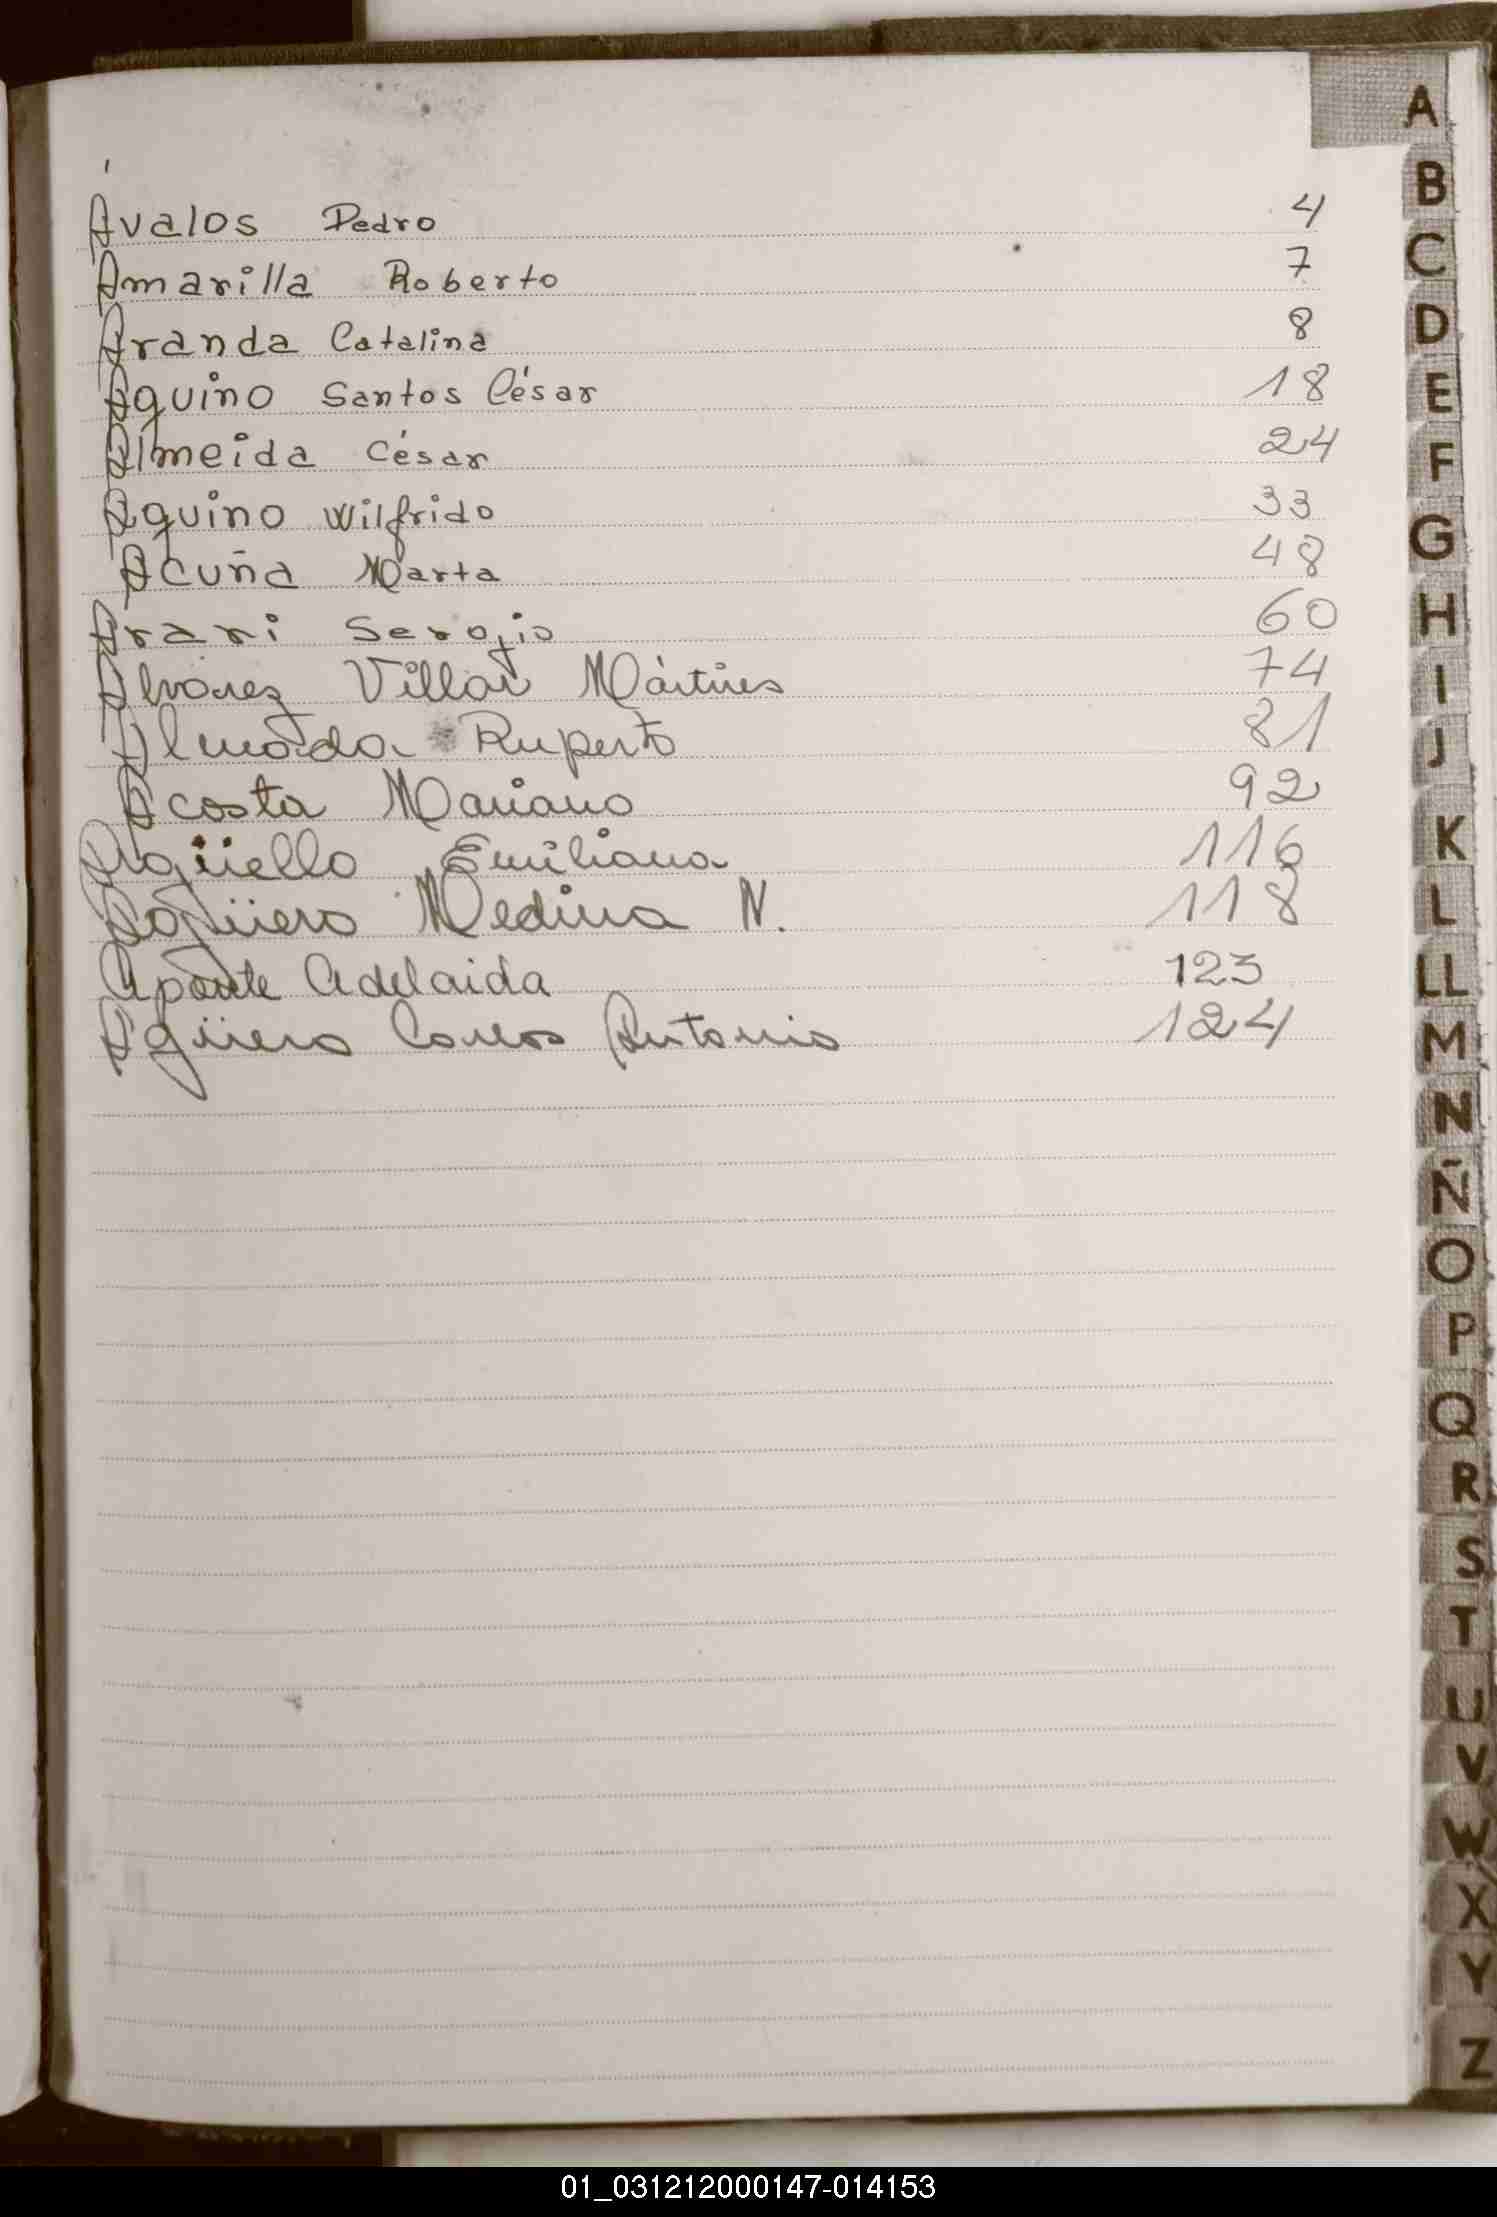 Ávalos Pedro 4
Amarilla Roberto 7
Aranda Catalina 8
Aquino Santos César 18
Almeida César 24
Aquino Wilfrido 33
Acuña Marta 48
Arari Sergio 60
Alvarez Villar Mártires 74
Almada Ruperto 81
Acosta Mariano 92
Argüello Emiliana 116
Agüero Medina N. 118
Aponte Adelaida 123
Agüero Carlos Antonio 124
A
B
C
D
E
F
G
H
I
J
K
L
LL
M
N
Ñ
O
P
Q
R
S
T
U
V
W
X
Y
Z
01_031212000147-014153